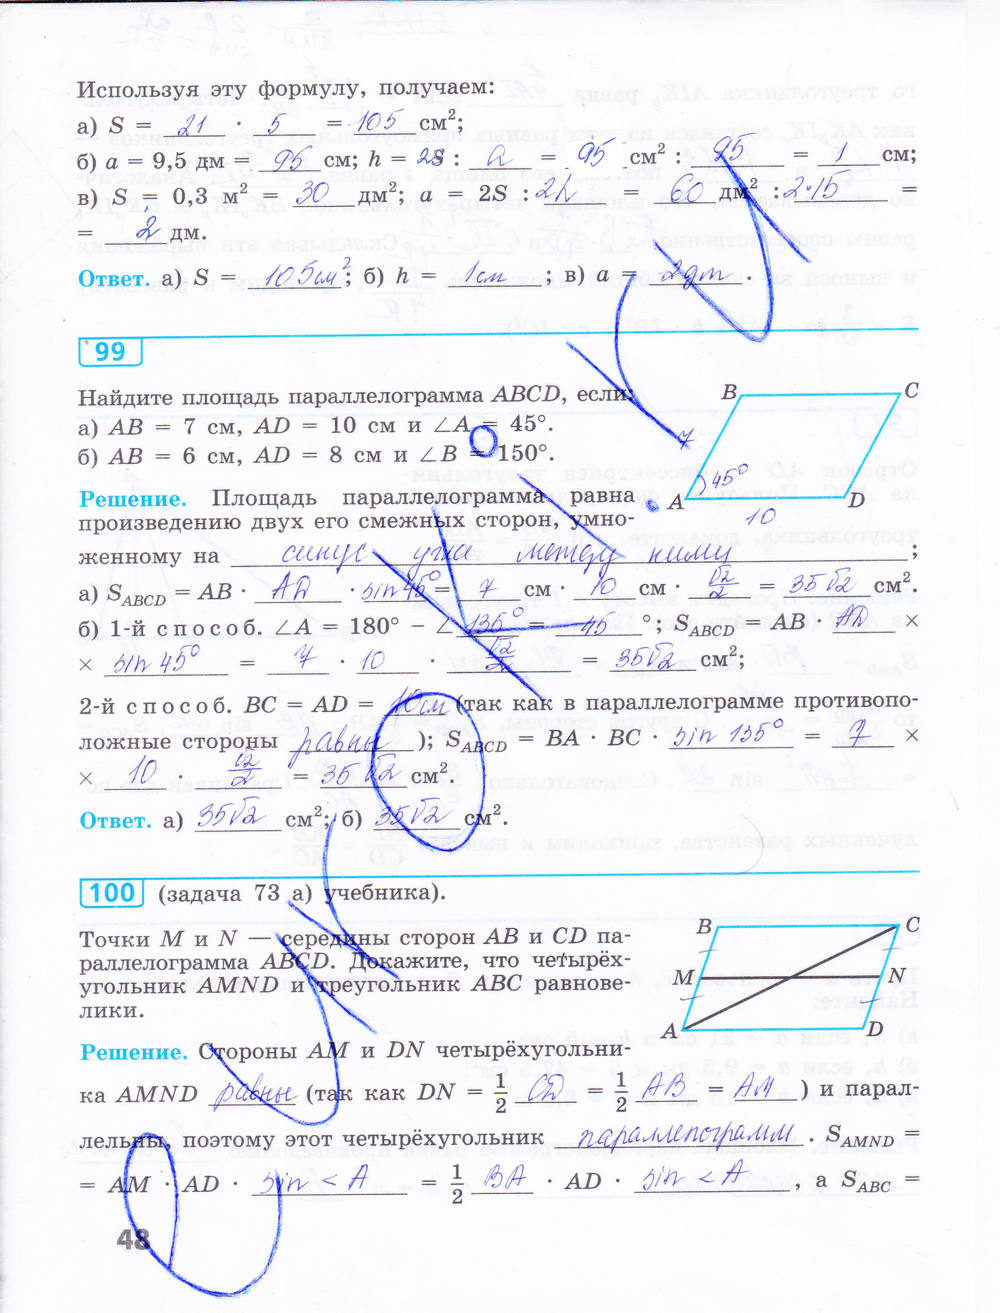 Используя эту формулу, получаем:
а) S = 21 · 5 = 105 см²;
б) a = 9,5 дм = 95 см; h = 2S : a = 95 см² : 95 = 1 см;
в) S = 0,3 м² = 30 дм²; a = 2S : 2h = 60 дм² : 2·15 =
= 2 дм.
Ответ. а) S = 105см²; б) h = 1см ; в) a = 2дм .
99
Найдите площадь параллелограмма ABCD, если:
а) AB = 7 см, AD = 10 см и ∠A = 45°.
б) AB = 6 см, AD = 8 см и ∠B = 150°.
B C
7
45°
A D
10
Решение. Площадь параллелограмма равна
произведению двух его смежных сторон, умно-
женному на синус угла между ними ;
а) SABCD = AB · AD · sin 45° = 7 см · 10 см · √2/2 = 35√2 см².
б) 1-й способ. ∠A = 180° − ∠ 135° = 45 °; SABCD = AB · AD ×
× sin 45° = 7 · 10 · √2/2 = 35√2 см²;
2-й способ. BC = AD = 10см (так как в параллелограмме противопо-
ложные стороны равны ); SABCD = BA · BC · sin 135° = 7 ×
× 10 √2/2 = 35√2 см².
Ответ. а) 35√2 см²; б) 35√2 см².
100 (задача 73 а) учебника).
Точки M и N — середины сторон AB и CD па-
раллелограмма ABCD. Докажите, что четырёх-
угольник AMND и треугольник ABC равнове-
лики.
B C
M N
A D
Решение. Стороны AM и DN четырёхугольни-
ка AMND равны (так как DN = 1/2 CD = 1/2 AB = AM ) и парал-
лельны, поэтому этот четырёхугольник параллелограмм . SAMND =
= AM · AD · sin < A = 1/2 BA · AD · sin < A , а SABC =
48